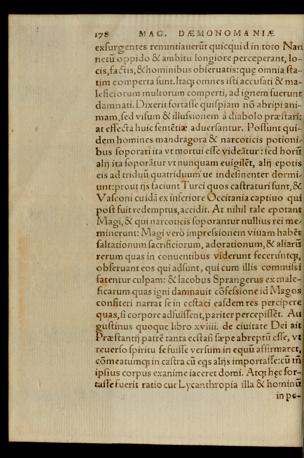 178 MAG. DÆMONOMANIÆ
exsurgentes renuntiauerũt quicquid in toto Nan
netũ oppido & ambitu longiore perceperant, lo-
cis, factis, & hominibus obseruatis: quę omnia sta-
tim comperta sunt. Itaq; omnes isti accusati & ma-
leficiorum multorum comperti, ad ignem fuerunt
damnati. Dixerit fortasse quispiam nõ abripi ani-
mam, sed visum & illusionem à diabolo præstari:
at effecta huic sentẽtiæ aduersantur. Possunt qui-
dem homines mandragora & narcoticis potioni-
bus soporati ita vt mortui esse videãtur: sed horũ
alij ita soporãtur vt nunquam euigilẽt, alij epotis
eis ad triduũ quatriduum ue indesinenter dormi-
unt: prout ijs faciunt Turci quos castraturi sunt, &
Vasconi cuidã ex inferiore Occitania captiuo qui
post fuit redemptus, accidit. At nihil tale epotant
Magi, & qui narcoticis soporantur nullius rei me-
minerunt: Magi verò impressionem viuam habẽt
saltationum sacrificiorum, adorationum, & aliarũ
rerum quas in conuentibus viderunt feceruntq;,
obseruant eos qui adsunt, qui cum illis commissi
fatentur culpam: & Iacobus Sprangerus ex male-
ficarum quas igni damnauit cõfessione id Magos
confiteri narrat se in ecstasi easdem res percipere
quas, si corpore adfuissent, pariter percepissẽt. Au
gustinus quoque libro xviiij. de ciuitate Dei ait
Præstantij patrẽ tanta ecstasi sæpe abreptũ esse, vt
reuerso spiritu se fuisse versum in equũ affirmaret,
cõmeatumq; in castra cũ eqs alijs importasse: cũ tñ
ipsius corpus exanime iaceret domi. Atq; hęc for-
tasse fuerit ratio cur Lycanthropia illa & hominũ
in pe-